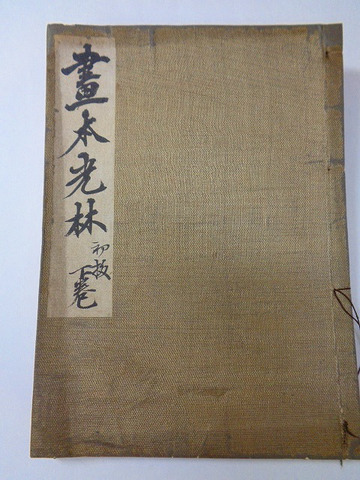 畫本光林
初板
下巻